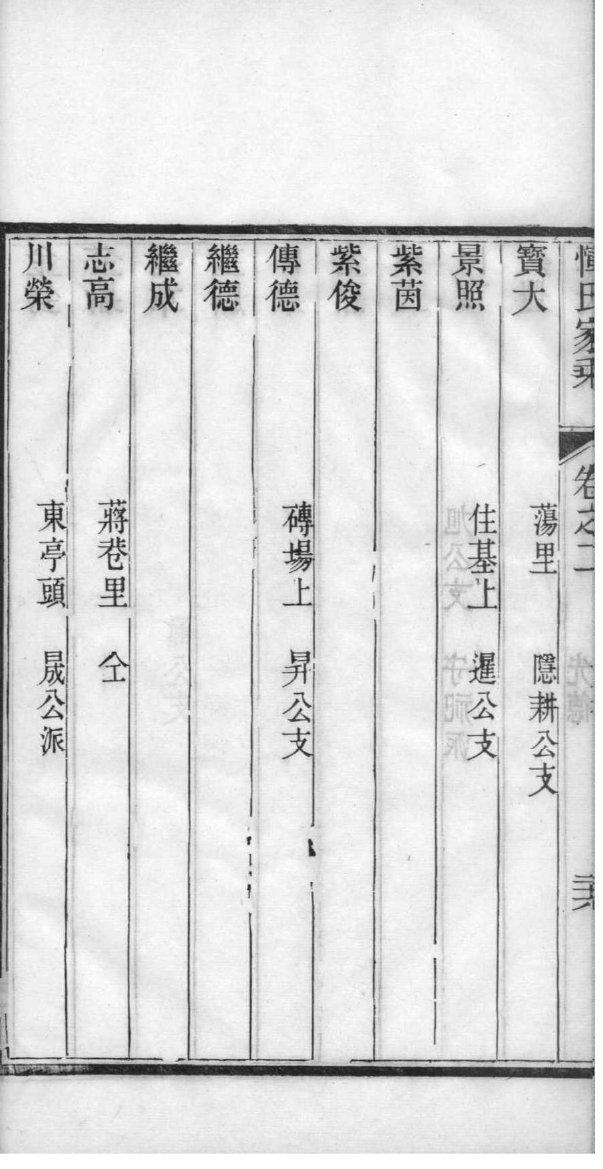 惲氏家乘 卷之二
寶大 蕩里 隱耕公支
景照 住基上 暹公支
紫茵
紫俊
傳德 磚場上 昇公支
繼德
繼成
志高 蔣巷里 仝
川榮 東亭頭 晟公派